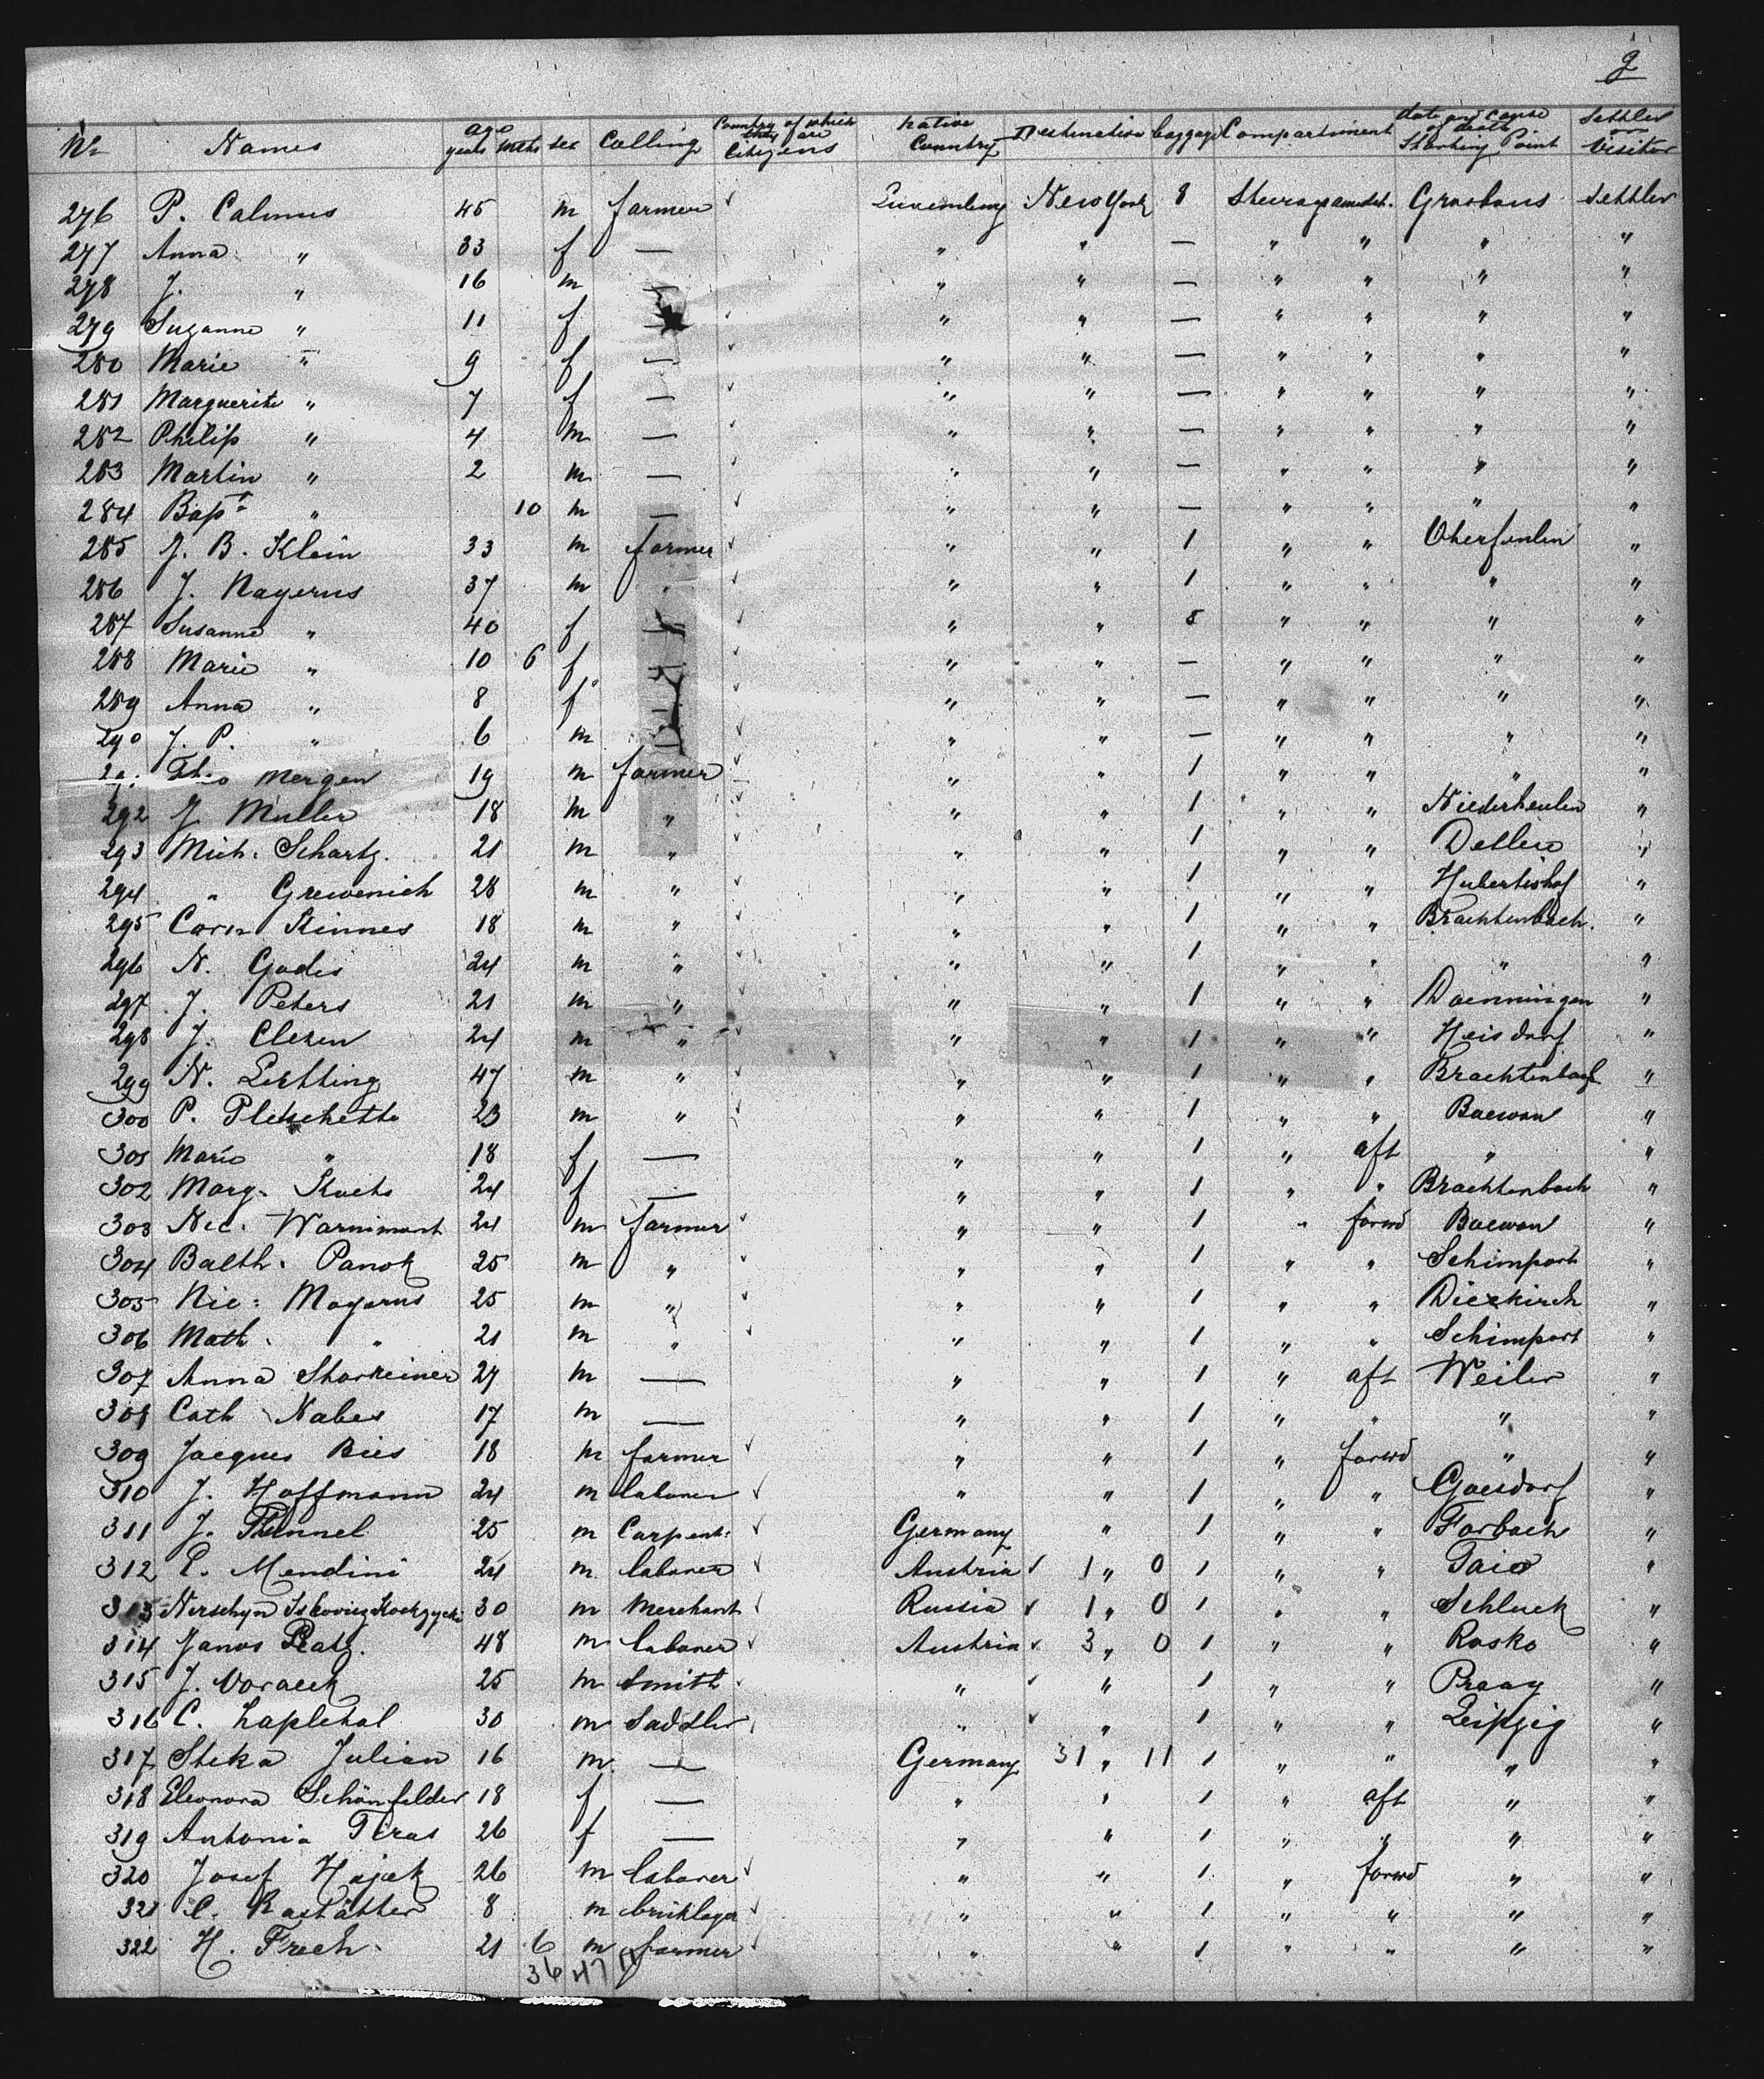 9
No Names age years mths sex Calling Country of which they are Citizens Native Country Destination baggage Compartiment date and cause of death Starting Point Settler or Visitor
276 P. Calmus 45 m farmer Luxemburg New York 8 Steerage Grosbous Settler
277 Anna " 33 f — " " — " " " "
278 J. " 16 m — " " — " " " "
279 Suzanne " 11 f — " " — " " " "
280 Marie " 9 f — " " — " " " "
281 Marguerite " 7 f — " " — " " " "
282 Philip " 4 m — " " — " " " "
283 Martin " 2 m — " " — " " " "
284 Bapt " 10 m — " " — " " " "
285 J. B. Klein 33 m farmer " " 1 " " "
286 J. Nagerus 37 m " " " 1 " " " "
287 Susanne " 40 f — " " 8 " " " "
288 Marie " 10 6 f " " — " " " "
289 Anna " 8 f " " — " " " "
290 J. P. " 6 m " " — " " " "
Mergen 19 m farmer " " 1 " " " "
292 J Muller 18 m " " " 1 " " "
293 Mich: Schartz. 21 m " " " 1 " " "
294 " Grewenich 28 m " " " 1 " " Hubertishof "
295 Corn Kinnes 18 m " " " 1 " " Brachtenbach. "
296 N. Godes 24 m " " " 1 " " " "
297 J. Peters 21 m " " " 1 " " Doenningen "
298 J. Clesen 24 m " " " 1 " " Heisdorf "
299 N. 47 m " " " 1 " " Brachtenbach "
300 P. Pletschette 23 m " " " 1 " " Baewan "
301 Marie " 18 f — " " 1 " aft " "
302 Marg. 24 f — " " 1 " " Brachtenbach "
303 Nic. Warnimont 24 m farmer " " 1 " forwd Baewan "
304 Balth. 25 m " " " 1 " " Schimpach "
305 Nic: Magerus 25 m " " " 1 " " Diekirch "
306 Math. " 21 m " " " 1 " " "
307 Anna 27 m — " " 1 " aft Weiler "
308 Cath Nabes 17 m — " " 1 " " " "
309 Jacques Bies 18 m farmer " " 1 " forwd " "
310 J. Hoffmann 24 m laborer " " 1 " " Goesdorf "
311 J. 25 m Carpent. Germany " 1 " " Forbach "
312 P. Mendini 24 m laborer Austria 1 " 0 1 " " Taio "
313 30 m Merchant Russia 1 " 0 1 " " Schluck "
314 Janos 48 m laborer Austria 3 " 0 1 " " Rosko "
315 J. Voracek 25 m Smith " " 1 " " Praag "
316 C. Zaplehal 30 m Saddler " " 1 " " Leipzig "
317 Steka Julian 16 m — Germany 31 " 11 1 " " " "
318 Eleonora Schönfelder 18 f — " " 1 " aft " "
319 Antonia Teras 26 f — " " 1 " " " "
320 Josef Hajek 26 m laborer " " 1 " forwd " "
321 C. Rastätter 8 m bricklayer " " 1 " " " "
322 H. Frech 21 6 m farmer " " 1 " " " "
36 47 11